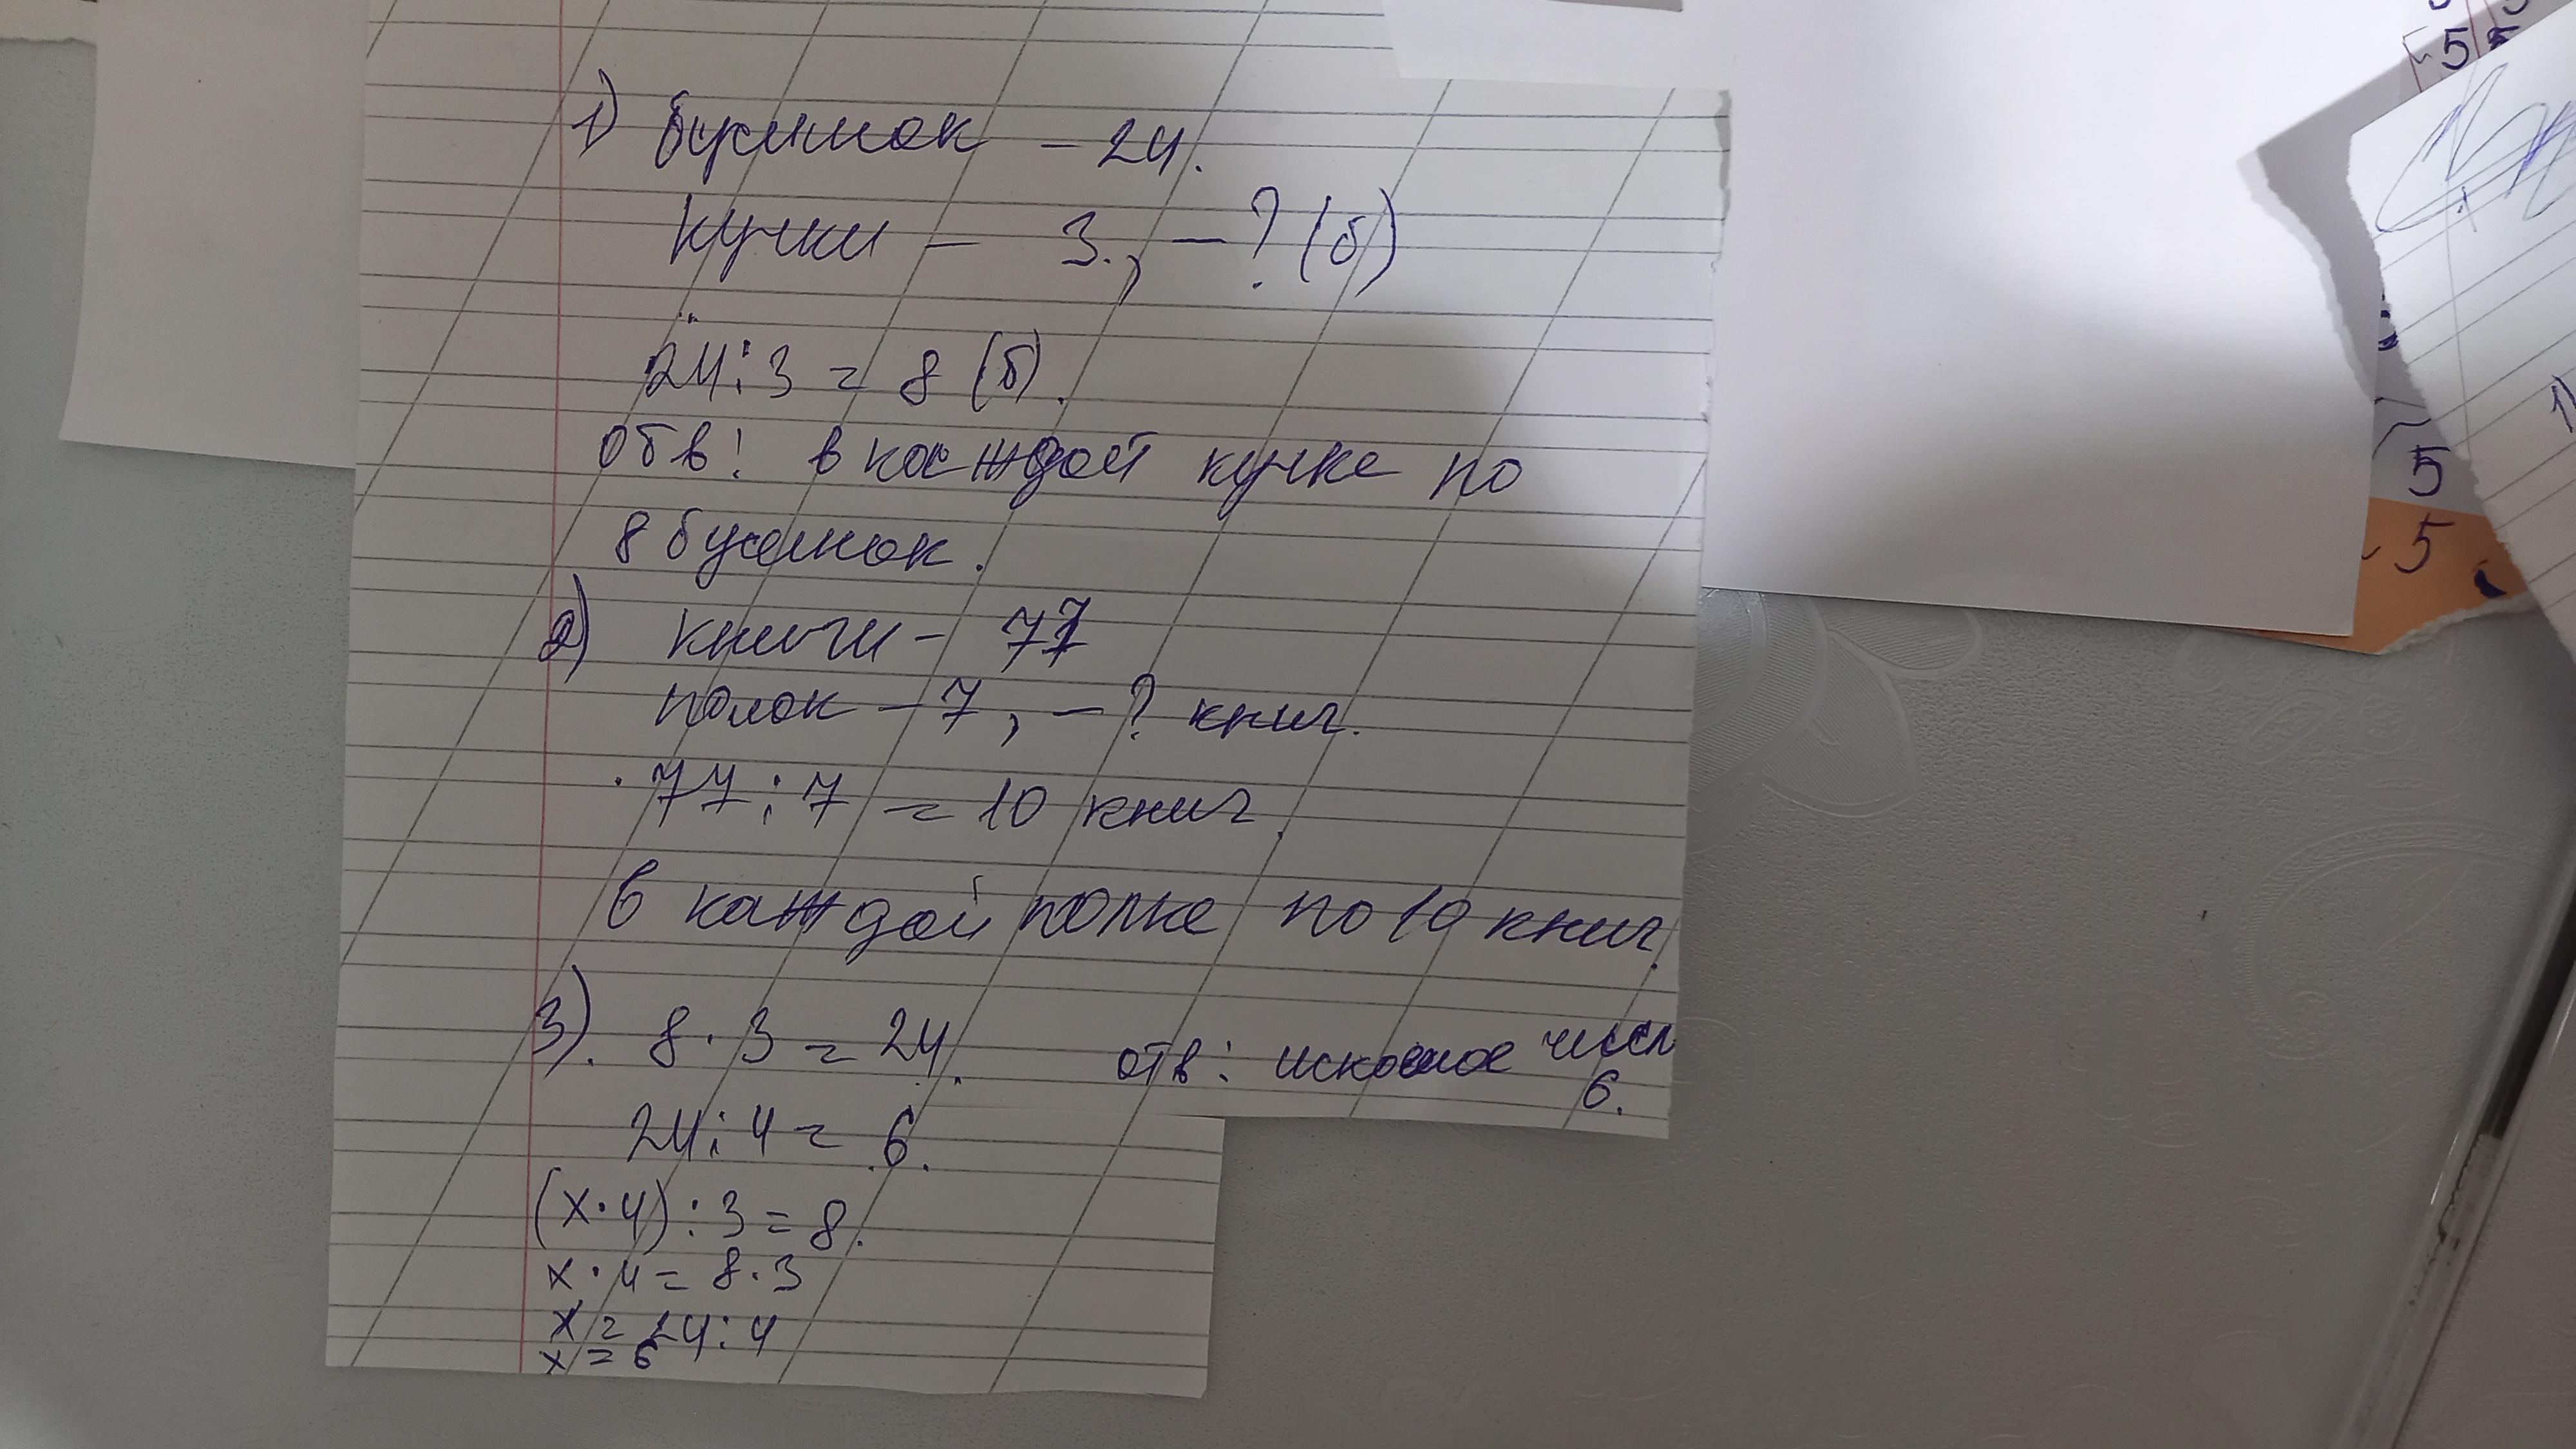 1) бусинок - 24.
кучки - 3., - ? (б)
24 : 3 = 8 (б).
отв: в каждой кучке по
8 бусинок.
2) книги - 77
полок - 7, - ? книг.
77 : 7 = 10 книг.
в каждой полке по 10 книг.
3). 8 · 3 = 24.
отв: искомое числ
6.
24 : 4 = 6.
(x · 4) : 3 = 8.
x · 4 = 8 · 3
x = 24 : 4
x = 6
5
5
5
1)